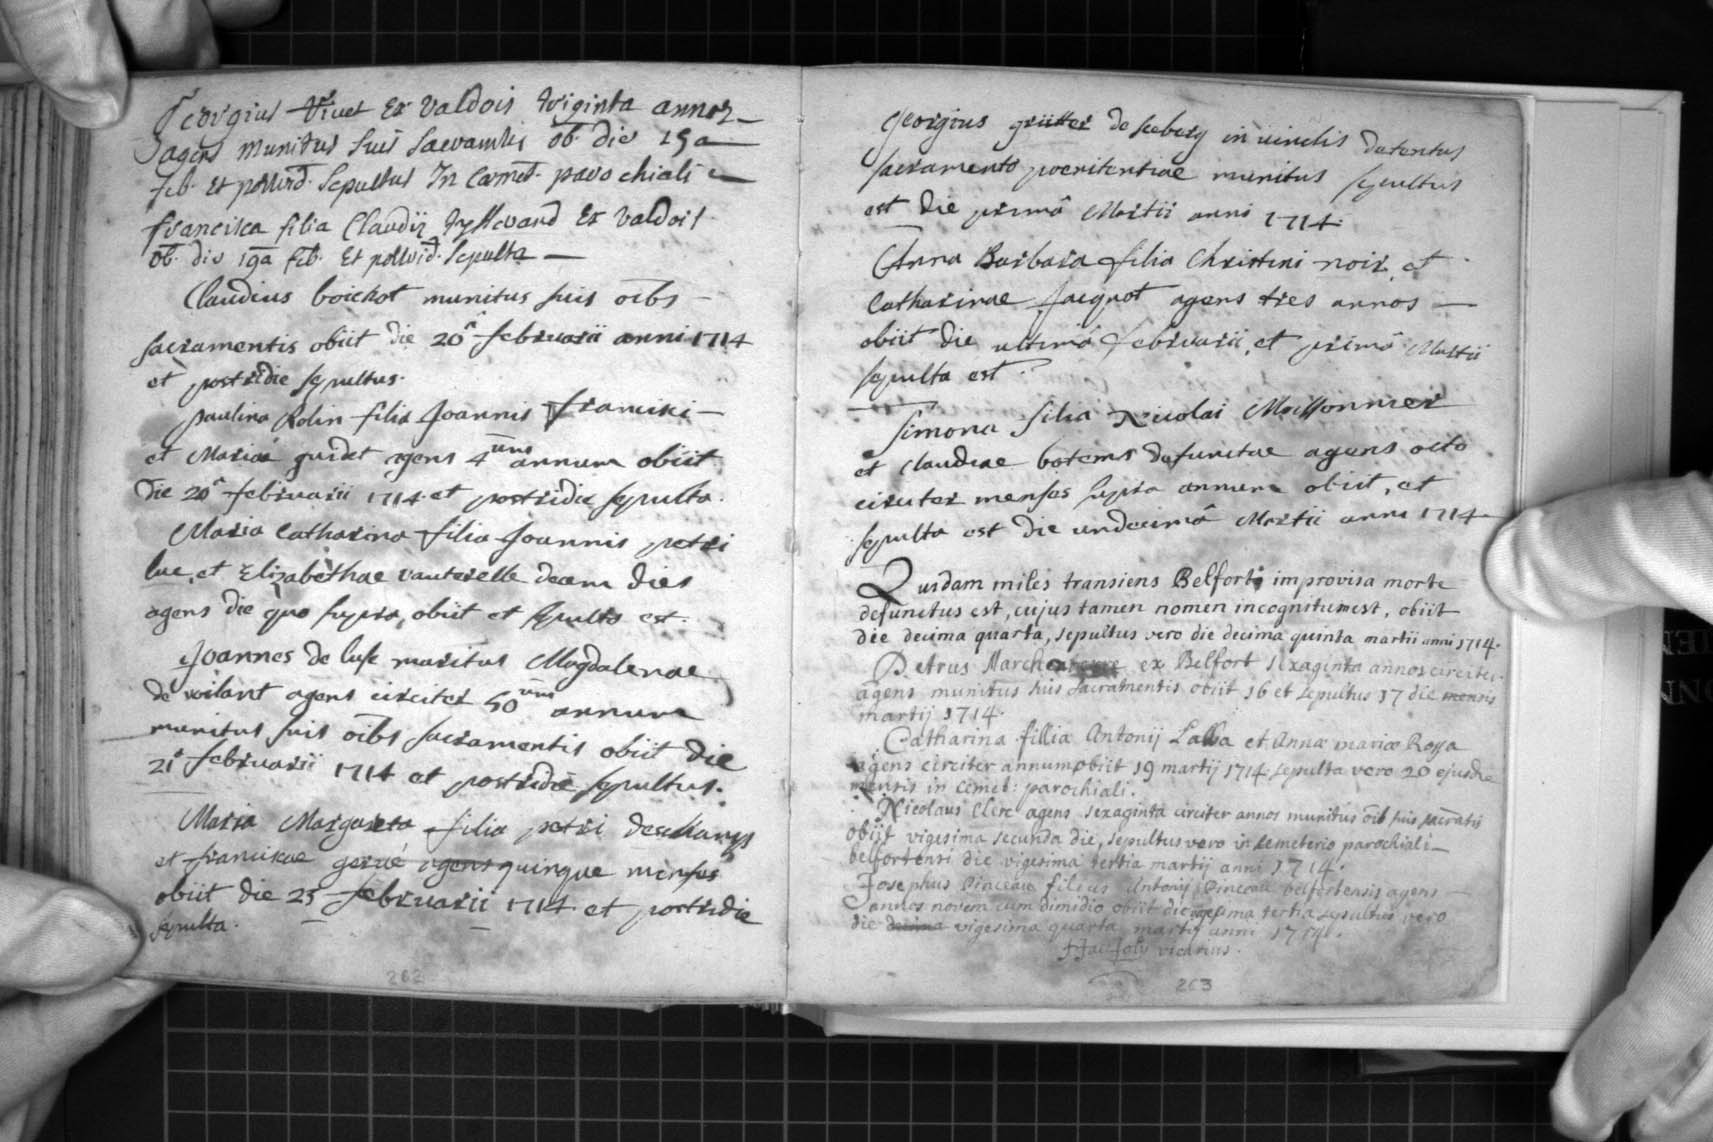 Georgius Vivet Ex Valdois triginta annos
agens munitus suis sacramtis ob. die 15a
feb. Et postrid. Sepultus In Cæmet. parochiali
francisca filia Claudij Ex Valdois
ob. die 19a feb. Et postrid. Sepulta
Claudius boichot munitus suis oibs
sacramentis obiit die 20â februarii anni 1714
et postridie sepultus.
paulina Rolin filia Joannis francisci
et Mariæ guidet agens 4um annum obiit
die 20â februarii 1714. et postridie sepulta.
Maria Catharina filia Joannis petri
lue, et Elizabethae vauterelle decem dies
agens die quo supra, obiit et sepulta est.
Joannes de luse maritus Magdalenae
de voilant agens circiter 50um annum
munitus suis oibs sacramentis obiit die
21â februarii 1714 et postridie sepultus.
Maria Margareta filia petri deschamps
et franciscae agens quinque menses
obiit die 25 februarii 1714. et postridie
sepulta.
262
Georgius grütter de seeberg in vinclis detentus
sacramento poenitentiae munitus sepultus
est die primâ Martii anni 1714.
Anna Barbara filia Christini noir, et
Catharinae Jacquot agens tres annos
obiit die ultimâ februarii, et primâ Martii
sepulta est.
Simona filia Nicolai Moissonnier
et Claudiae botems defunctae agens octo
circiter menses supra annum obiit, et
sepulta est die undecimâ Martii anni 1714
Quidam miles transiens Belforti improvisa morte
defunctus est, cujus tamen nomen incognitum est, obiit
die decima quarta, sepultus vero die decima quinta martii anni 1714.
Petrus ex Belfort sexaginta annos circiter
agens munitus suis sacramentis obiit 16 et sepultus 17 die mensis
martij 1714.
Catharina fillia Antonij Lalla et Annæ mariæ Rossa
agens circiter annum obiit 19 martij 1714. sepulta vero 20 ejusde
mensis in cemet: parochiali.
Nicolaus Clerc agens sexaginta circiter annos munitus oib suis sacratis
obiit vigesima secunda die, sepultus vero in Cemeterio parochiali
belfortensi die vigesima tertia martij anni 1714.
Josephus Pinceau filius Antonij Pinceau belfortensis agens
annos novem cum dimidio obiit die vigesima tertia sepultus vero
die decima vigesima quarta martij anni 1714.
Joly vicarius.
263